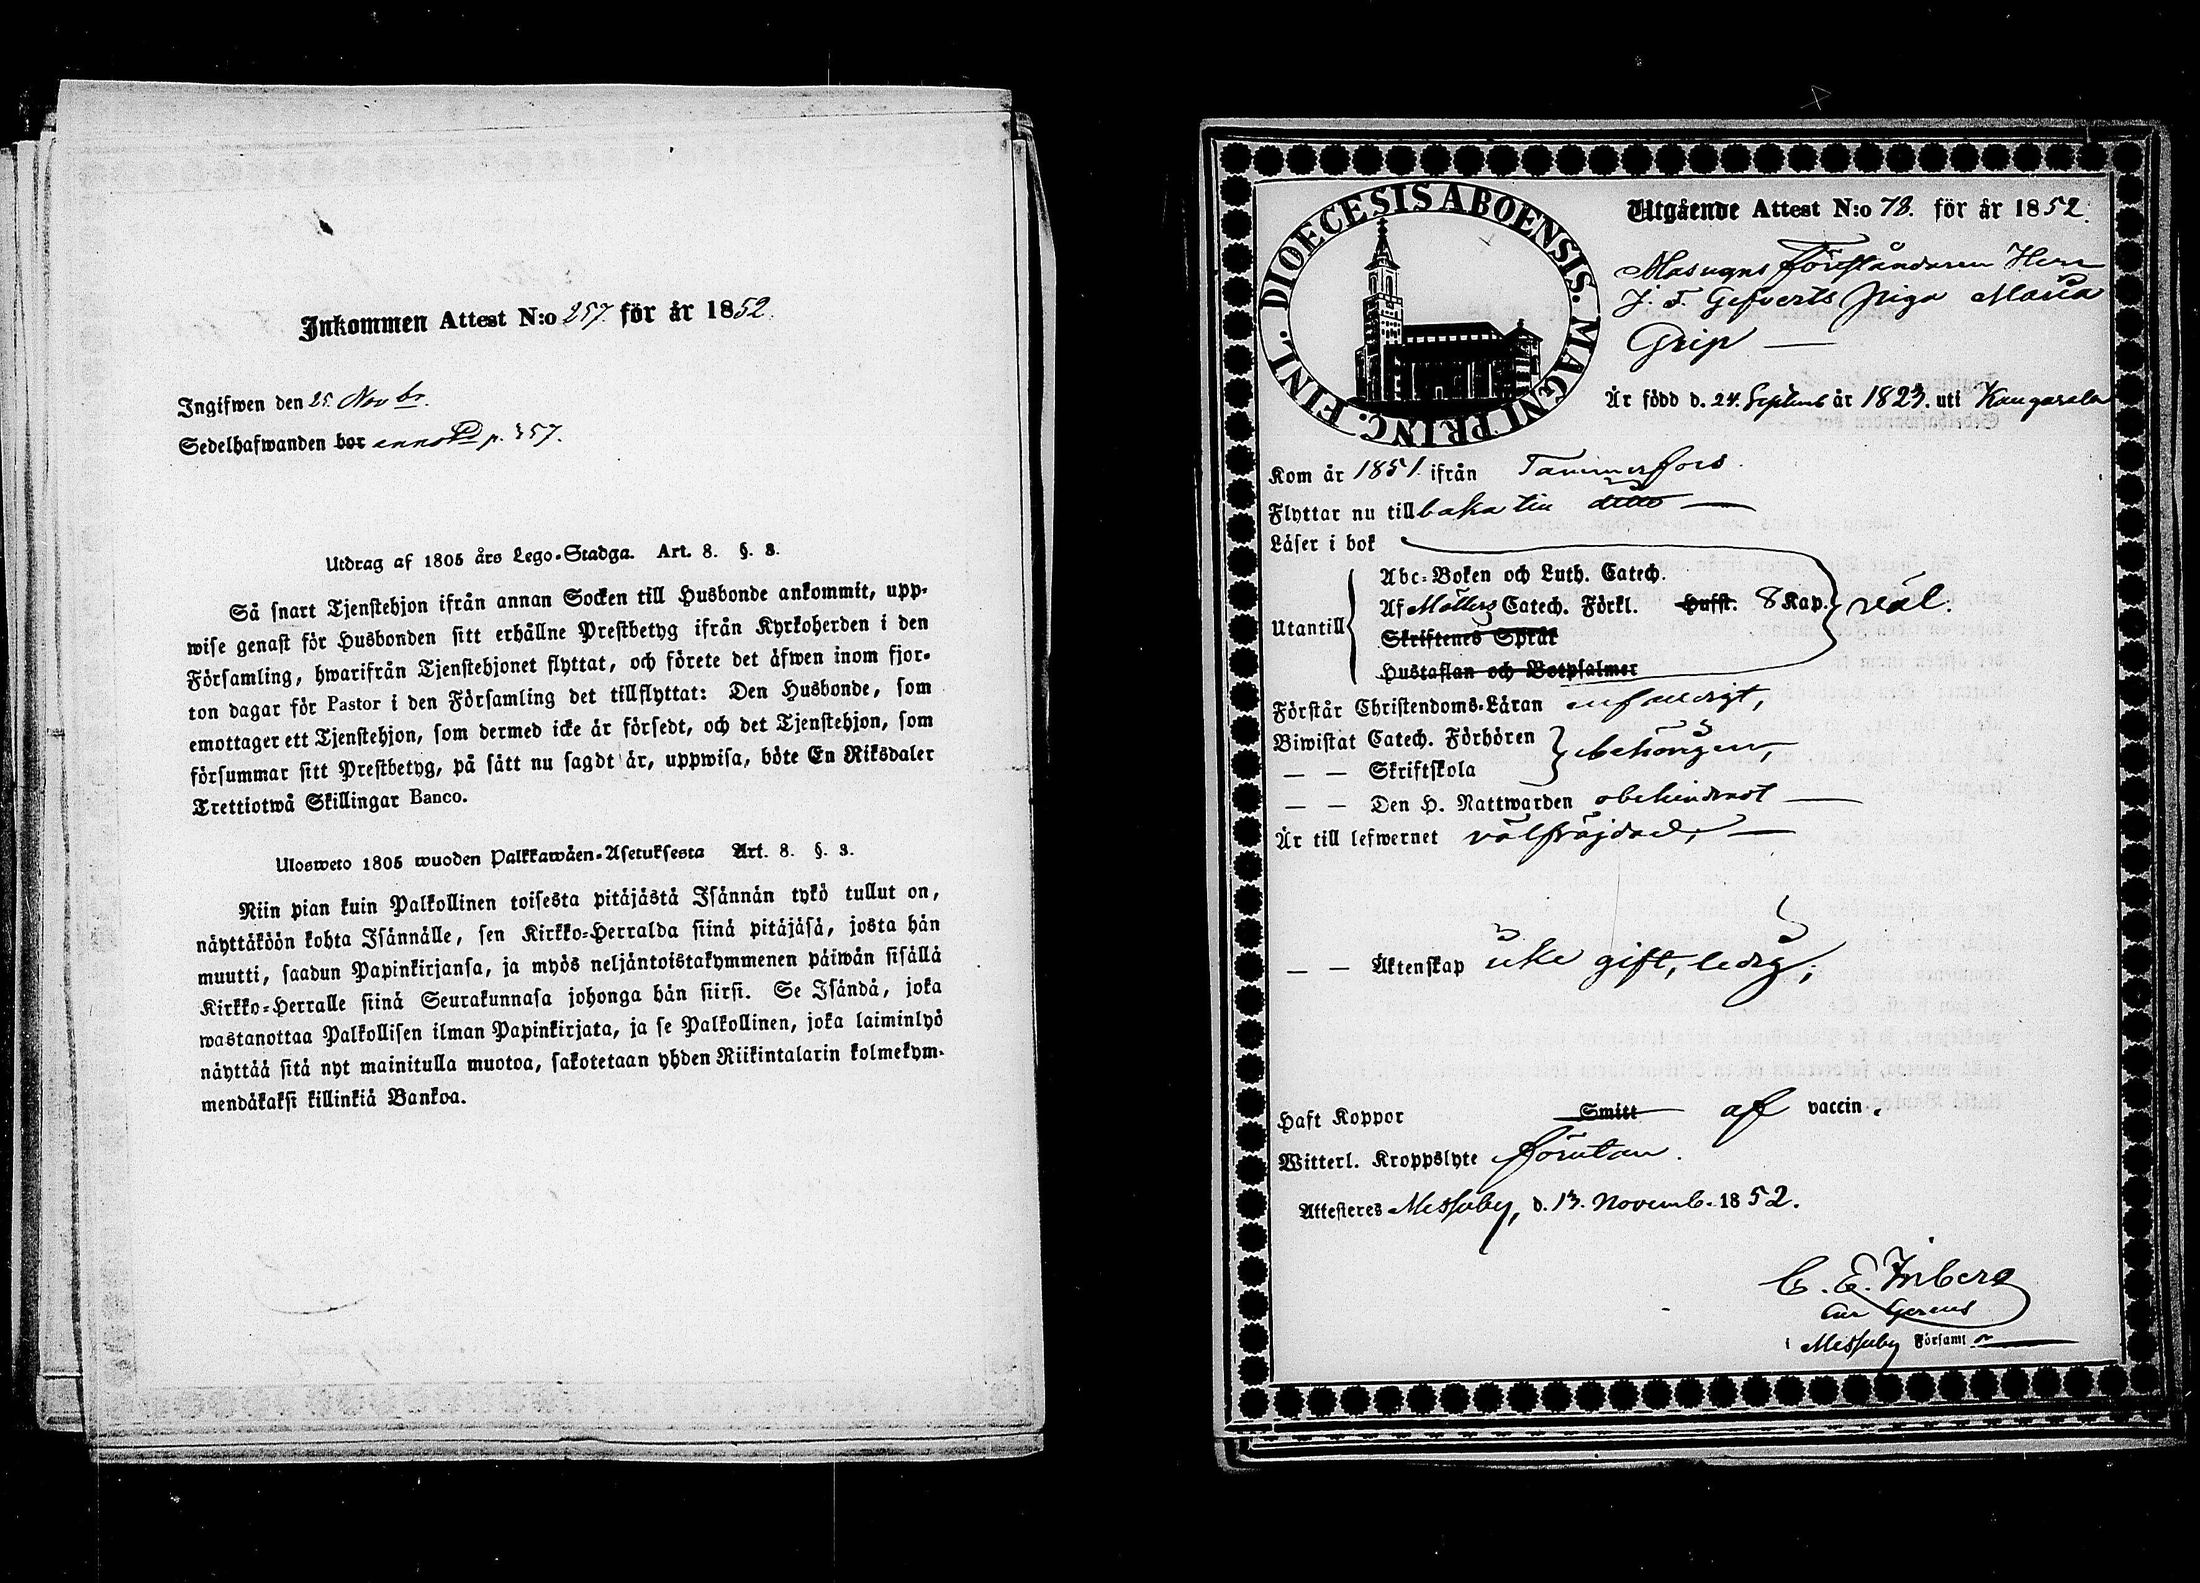 Inkommen Attest N:o 257. för år 1852.
Ingifwen den 25. Novbr.
Sedelhafwanden bor annot. p. 357.
Utdrag af 1805 års Lego-Stadga. Art. 8. §. 3.
Så snart Tjenstehjon ifrån annan Socken till Husbonde ankommit, upp-
wise genast för Husbonden sitt erhållne Prestbetyg ifrån Kyrkoherden i den
Församling, hwarifrån Tjenstehjonet flyttat, och förete det äfwen inom fjor-
ton dagar för Pastor i den Församling det tillflyttat: Den Husbonde, som
emottager ett Tjenstehjon, som dermed icke är försedt, och det Tjenstehjon, som
försummar sitt Prestbetyg, på sätt nu sagdt är, uppwisa, böte En Riksdaler
Trettiotwå Skillingar Banco.
Ulosweto 1805 wuoden Palkkawäen-Asetuksesta Art. 8. §. 3.
Niin pian kuin Palkollinen toisesta pitäjästä Isännän tykö tullut on,
näyttäköön kohta Isännälle, sen Kirkko-Herralda siinä pitäjäsä, josta hän
muutti, saadun Papinkirjansa, ja myös neljäntoistakymmenen päiwän sisällä
Kirkko-Herralle siinä Seurakunnasa johonga hän siirsi. Se Isändä, joka
wastanottaa Palkollisen ilman Papinkirjata, ja se Palkollinen, joka laiminlyö
näyttää sitä nyt mainitulla muotoa, sakotetaan yhden Riikintalarin kolmekym-
mendäkaksi killinkiä Bankoa.
DIOECESIS ABOENSIS. MAGNI PRINC. FINL.
Utgående Attest N:o 78. för år 1852.
Masugns Föreståndaren Herr
J. F. Gefverts Piga Maria
Grip
Är född d. 24. Septemb år 1823. uti Kangasala
Kom år 1851. ifrån Tammerfors.
Flyttar nu tillbaka till ditto
Läser i bok
Abc-Boken och Luth. Catech.
Utantill Af Möllers Catech. Förkl. Hufst. 8 Kap. väl.
Skriftenes Språk
Hustaflan och Botpsalmer
Förstår Christendoms-Läran enfaldigt,
Biwistat Catech. Förhören
— — Skriftskola behörigen,
— — Den H. Nattwarden obehindradt
Är till lefwernet välfräjdad,
— — Äktenskap icke gift, ledig;
Haft Koppor Smitt af vaccin.
Witterl. Kroppslyte förutan.
Attesteres Messuby, d. 13. Novemb. 1852.
C. E.
i Messuby Församl.